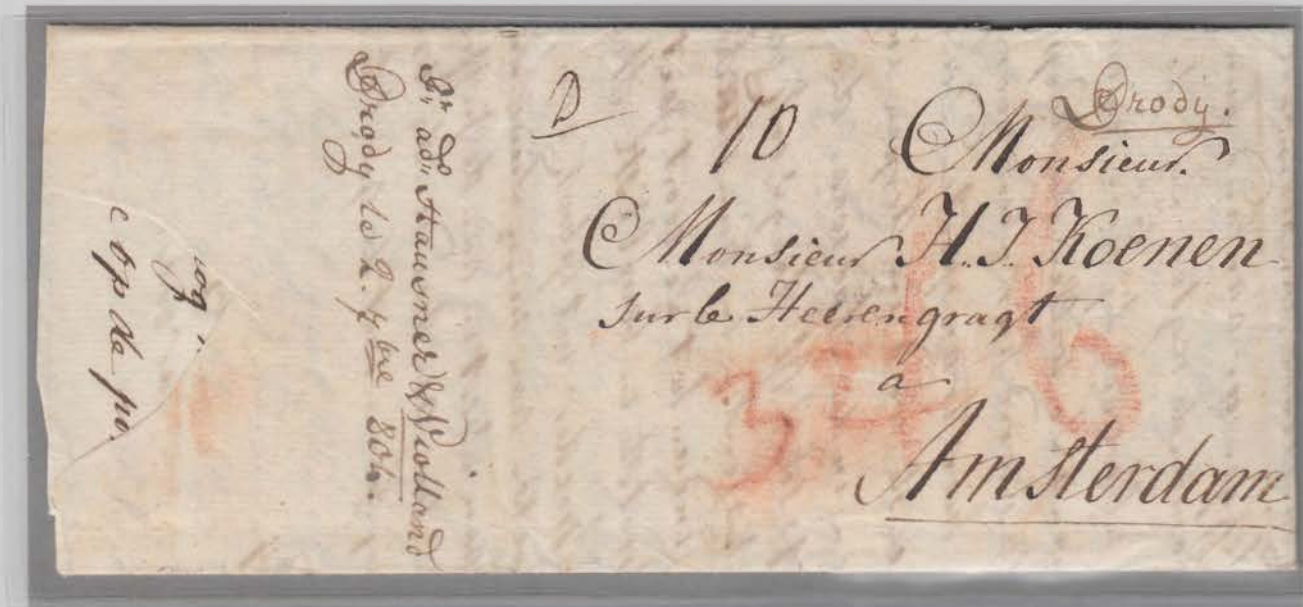 D
10
Brody.
Monsieur.
Monsieur H. J. Koenen
sur le Heerengragt
a
Amsterdam
34
6
Hausner & Violland
Brody le 2. 7bre 804.
op de po.